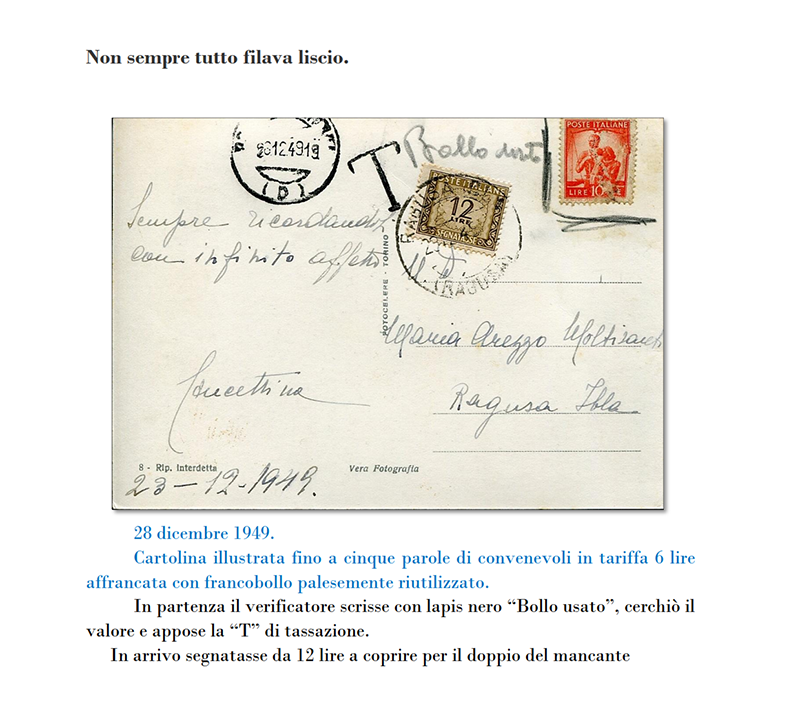 Non sempre tutto filava liscio.
26.12.49.19
(D)
T
Bollo usato
POSTE ITALIANE
LIRE 10
POSTE ITALIANE
12
LIRE
SEGNATASSE
(RAGUSA)
Sempre ricordando
con infinito affetto
FOTOCELERE - TORINO
Maria Arezzo Moltisanti
Concettina
Ragusa Ibla
8 - Rip. Interdetta
Vera Fotografia
23-12-1949.
28 dicembre 1949.
Cartolina illustrata fino a cinque parole di convenevoli in tariffa 6 lire
affrancata con francobollo palesemente riutilizzato.
In partenza il verificatore scrisse con lapis nero “Bollo usato”, cerchiò il
valore e appose la “T” di tassazione.
In arrivo segnatasse da 12 lire a coprire per il doppio del mancante